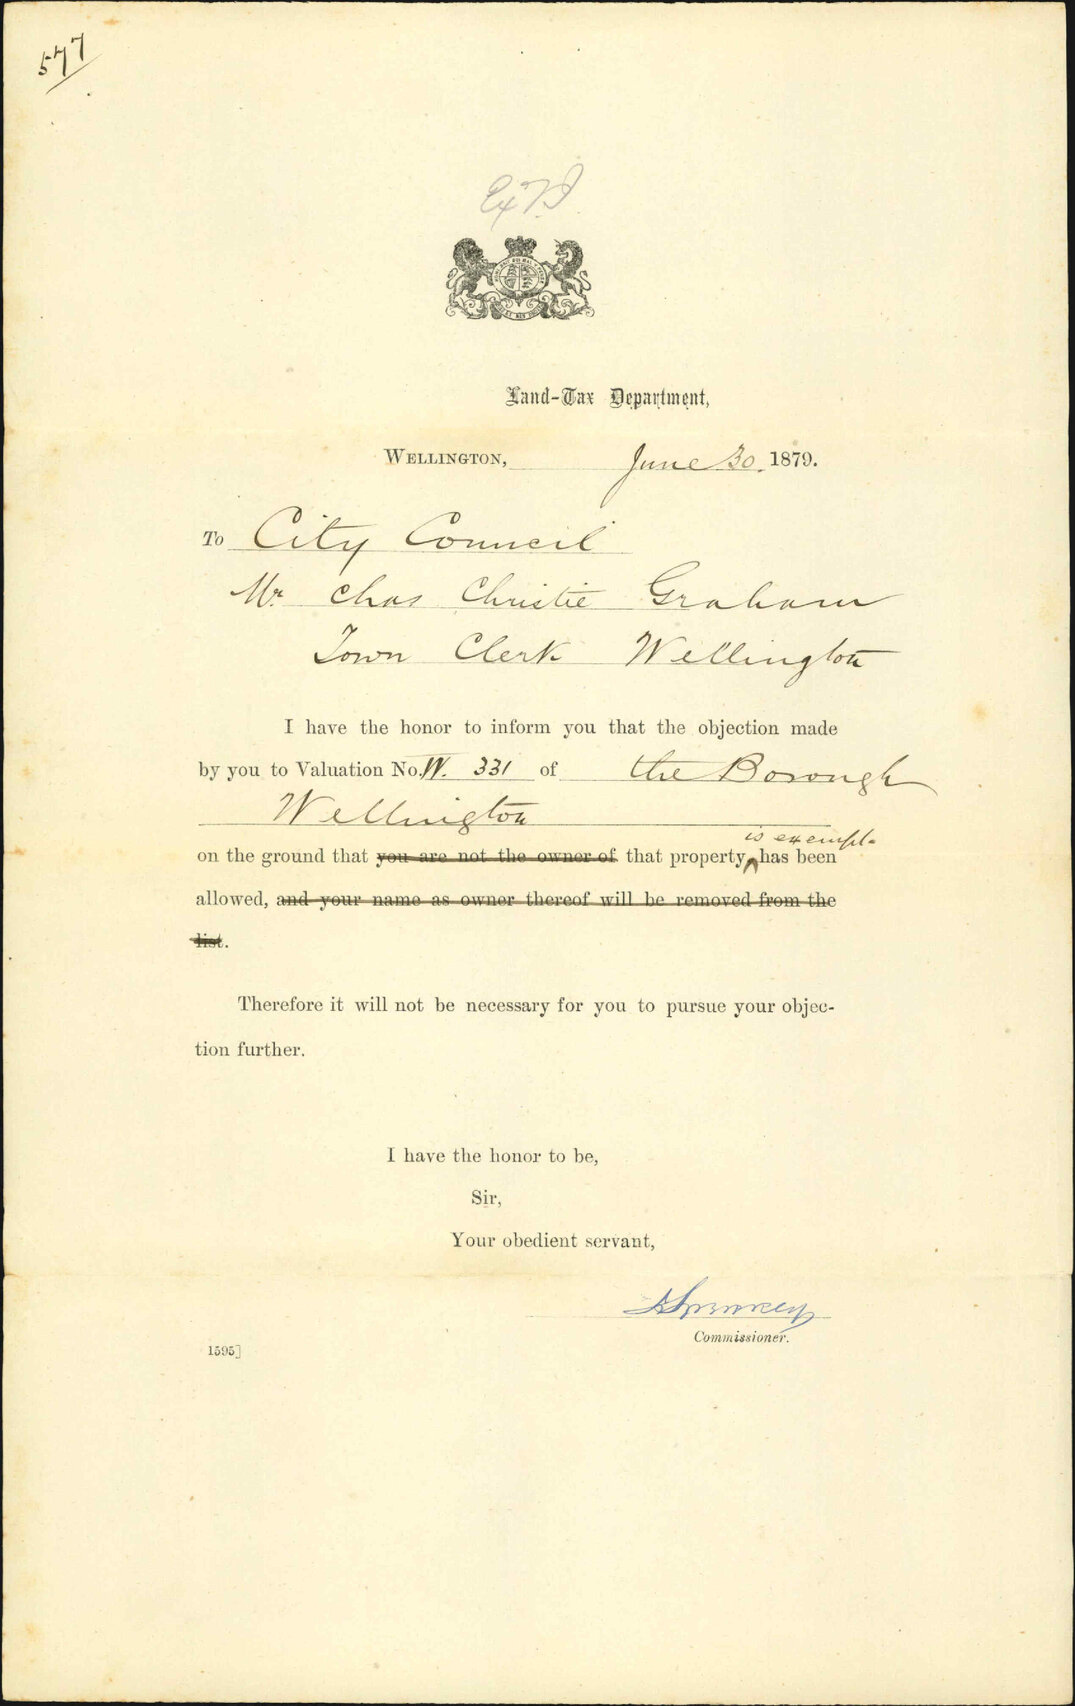 577
Land-Tax Department,
WELLINGTON, June 30. 1879.
To City Council
Mr. Chas Christie Graham
Town Clerk Wellington
I have the honor to inform you that the objection made
by you to Valuation No. W. 331 of the Borough
Wellington
is exempt
on the ground that you are not the owner of that property, has been
allowed, and your name as owner thereof will be removed from the
list.
Therefore it will not be necessary for you to pursue your objec-
tion further.
I have the honor to be,
Sir,
Your obedient servant,
Commissioner.
1595]